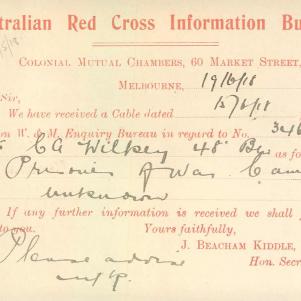 tralian Red Cross Information Bu
5/18
COLONIAL MUTUAL CHAMBERS, 60 MARKET STREET,
MELBOURNE, 19/6/18
Sir,
We have received a Cable dated 15/6/18
on W. & M. Enquiry Bureau in regard to No. 346
CA Wilkey 48 Bn as fo
Prisoner of War Cam
unknown
If any further information is received we shall
to you. Yours faithfully,
J. BEACHAM KIDDLE,
Hon. Secr
Please